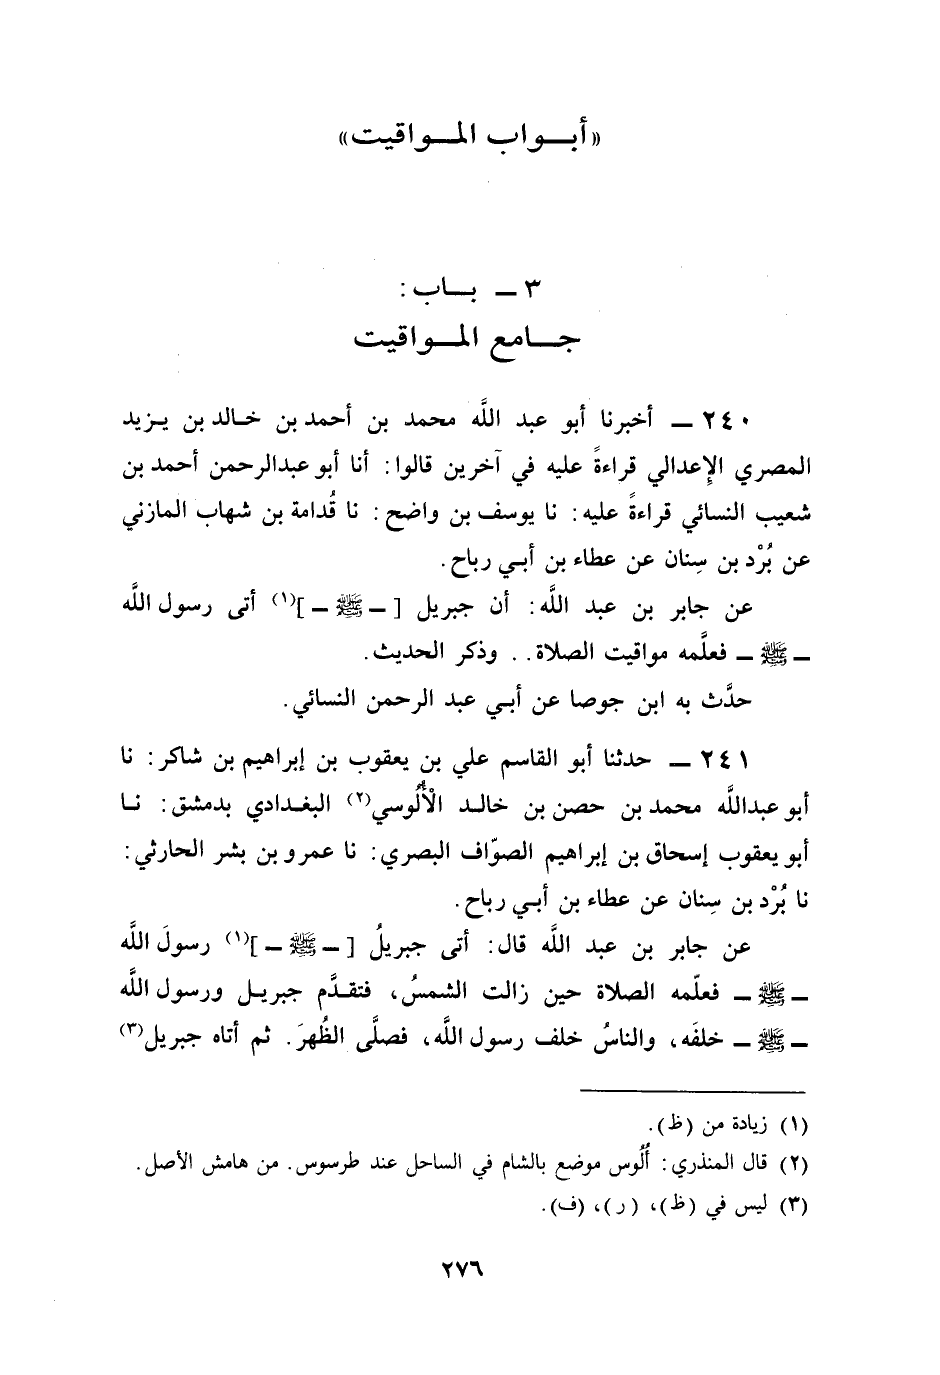 «أبـواب المـواقيت»
٣ ـ بـاب :
جـامع المـواقيت
٢٤٠ ـ أخبرنا أبو عبد اللَّه محمد بن أحمد بن خالد بن يزيد
المصري الإِعدالي قراءةً عليه في آخرين قالوا: أنا أبو عبدالرحمن أحمد بن
شعيب النسائي قراءةً عليه: نا يوسف بن واضح: نا قُدامة بن شهاب المازني
عن بُرْد بن سِنان عن عطاء بن أبـي رباح.
عن جابر بن عبد اللَّه: أن جبريل [ ـ ﷺ ـ ](١) أتى رسول اللَّه
ـ ﷺ ـ فعلَّمه مواقيت الصلاة.. وذكر الحديث.
حدَّث به ابن جوصا عن أبـي عبد الرحمن النسائي.
٢٤١ ـ حدثنا أبو القاسم علي بن يعقوب بن إبراهيم بن شاكر: نا
أبو عبداللَّه محمد بن حصن بن خالد الْأُلُوسي(٢) البغدادي بدمشق: نـا
أبو يعقوب إسحاق بن إبراهيم الصوّاف البصري: نا عمرو بن بشر الحارثي:
نا بُرْد بن سِنان عن عطاء بن أبـي رباح.
عن جابر بن عبد اللَّه قال: أتى جبريلُ [ ـ ﷺ ـ ](١) رسولَ اللَّه
ـ ﷺ ـ فعلّمه الصلاة حين زالت الشمسُ، فتقدَّم جبريـل ورسول اللَّه
ـ ﷺ ـ خلفَه، والناسُ خلف رسول اللَّه، فصلَّى الظُهرَ. ثم أتاه جبريل(٣)
(١) زيادة من (ظ).
(٢) قال المنذري: أُلُوس موضع بالشام في الساحل عند طرسوس. من هامش الأصل.
(٣) ليس في (ظ)، (ر)، (ف).
٢٧٦